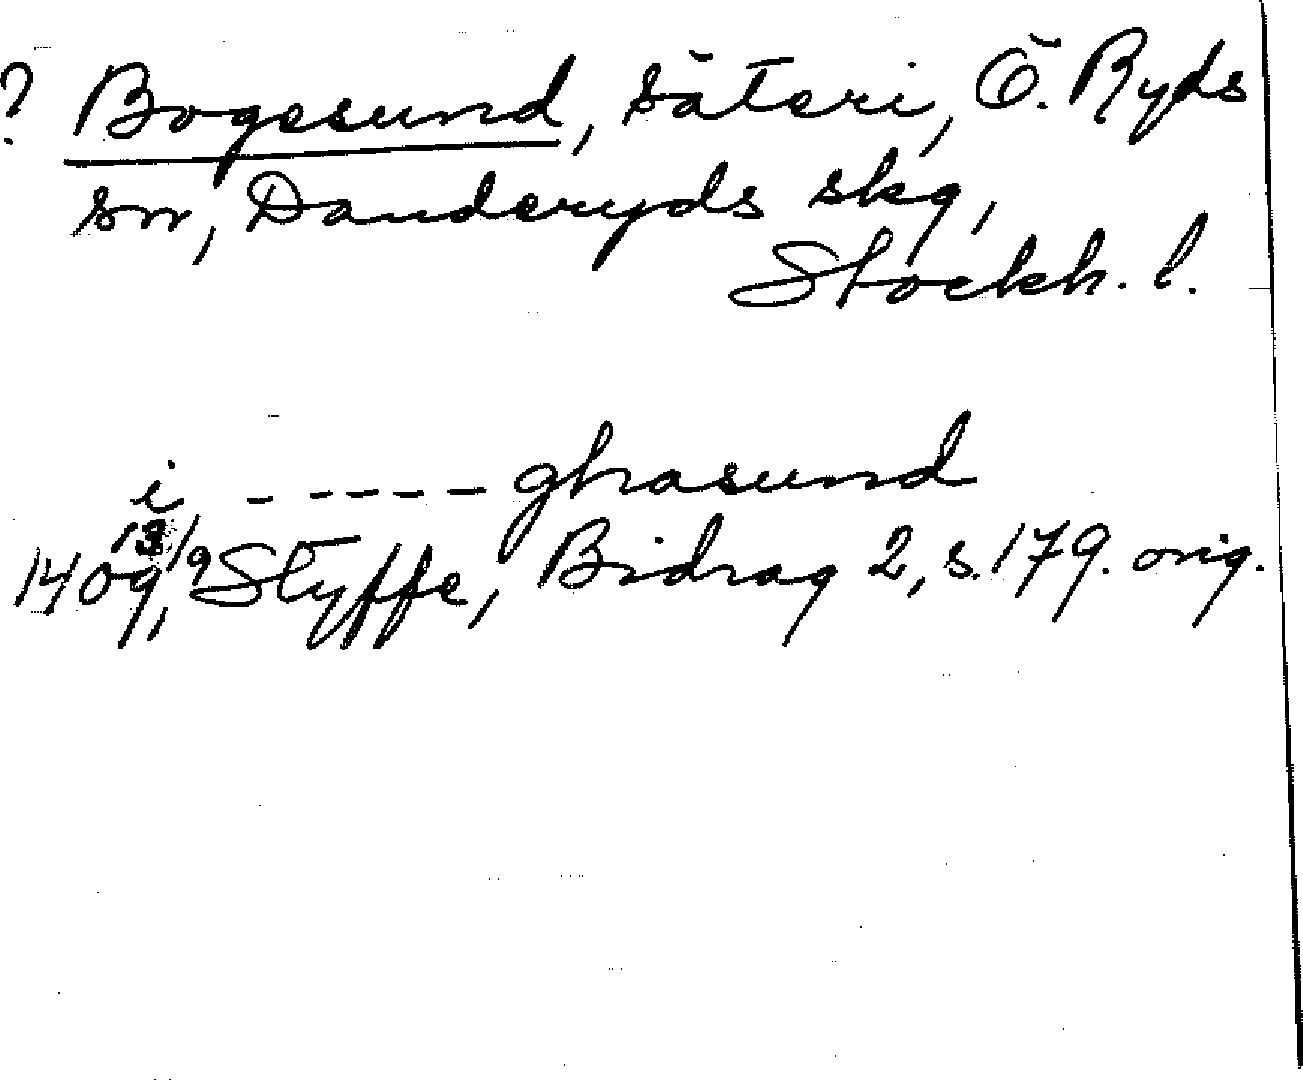 ? Bogesund, säteri, Ö. Ryds
sn, Danderyds skg,
Stockh. l.
i - - - - - ghasund
1409 13/9, Styffe, Bidrag 2, s. 179. orig.